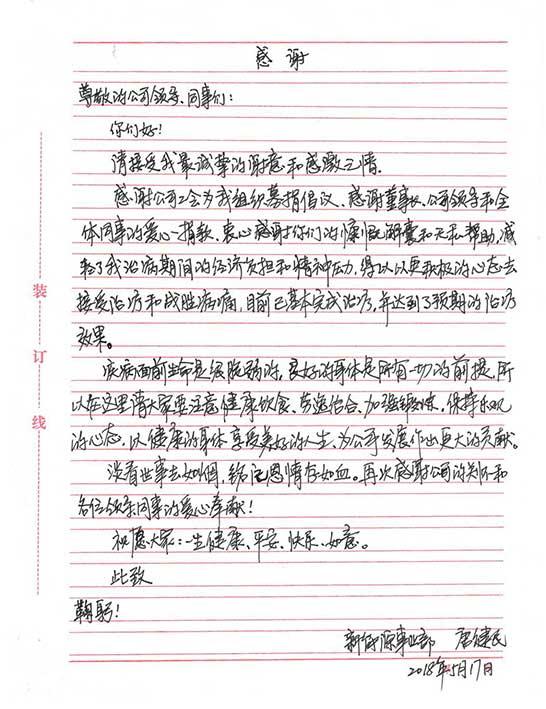 感谢
尊敬的公司领导、同事们：
你们好！
请接受我最诚挚的谢意和感激之情。
感谢公司工会为我组织募捐倡议、感谢董事长、公司领导和全
体同事的爱心捐款。衷心感谢你们的慷慨解囊和无私帮助，减
轻了我治病期间的经济负担和精神压力，得以以更积极的心态去
接受治疗和战胜病痛，目前已基本完成治疗，并达到了预期的治疗
效果。
疾病面前生命是很脆弱的，良好的身体是所有一切的前提，所
以在这里请大家要注意健康饮食、劳逸结合、加强锻炼、保持乐观
的心态，以健康的身体享受美好的人生、为公司发展作出更大的贡献。
淡看世事去如烟，铭记恩情存如血。再次感谢公司的关怀和
各位领导同事的爱心奉献！
祝愿大家：一生健康、平安、快乐、如意。
此致
鞠躬！
新能源事业部 唐健民
2018年5月17日
装
订
线